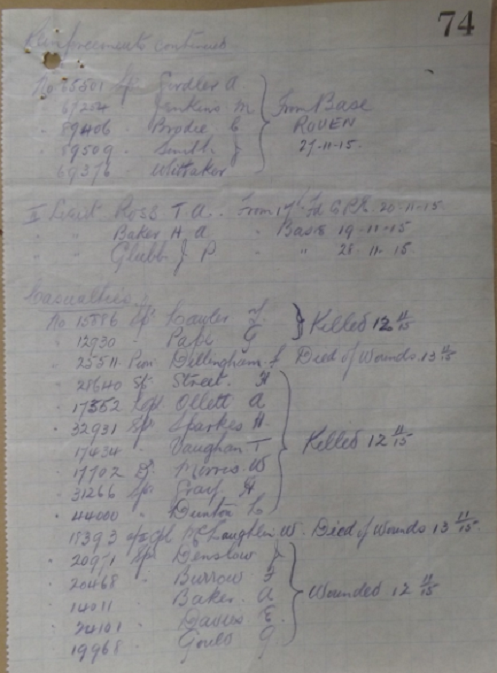 74
Reinforcements continued
No 65501 Spr Girdler A
" 67254 " Jenkins M
" 89406 " Brodie C
" 89509 " Smith J
" 69376 " Whittaker
From Base
ROUEN
27-11-15.
II Lieut Ross T. A. From 17th Fd 20-11-15
" " Baker H. A " Base 19-11-15
" " Glubb J P " " 28-11-15
Casualties
No 15886 Spr
" 12930 " Pape G
Killed 12 11/15
" 25511 Pion Dillingham Died of Wounds 13 11/15
" 21640 Street H
" 17552 Ollett A
" 32931 Spr Sparkes H
" 17434 " Vaughan T
" 17702 Morris W
" 31266 Spr Gray H
" 44000 " Dunton
Killed 12 11/15
" 18393 McLaughlin W. Died of Wounds 13 11/15
" 20971 Spr Denslow
" 20468 " Burrow F
" 14011 " Baker A
" 24101 " Davies E
" 19968 Gould G
Wounded 12 11/15